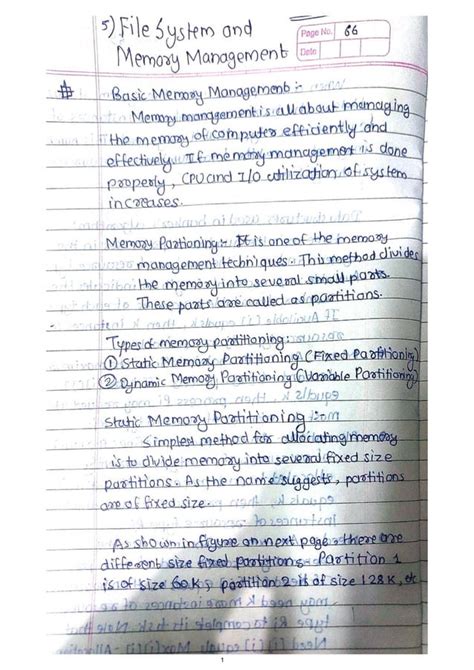 5) File System and
Memory Management
Page No. 66
Date
# Basic Memory Management :-
Memory management is all about managing
the memory of computer efficiently and
effectively. If memory management is done
properly, CPU and I/O utilization of system
increases.
Memory Partioning:- It is one of the memory
management techniques. This method divides
the memory into several small parts.
These parts are called as partitions.
Types of memory partitioning:
① Static Memory Partitioning (Fixed Partitioning)
② Dynamic Memory Partitioning (Variable Partitioning)
Static Memory Partitioning :-
Simplest method for allocating memory
is to divide memory into several fixed size
partitions. As the name suggests, partitions
are of fixed size.
As shown in figure on next page, there are
different size fixed partitions. Partition 1
is of size 60K, partition 2 is of size 128K, etc
1